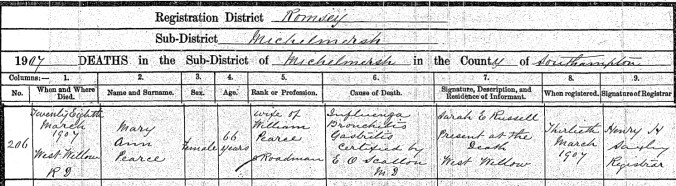 Registration District Romsey
Sub-District Michelmersh
1907 DEATHS in the Sub-District of Michelmersh in the County of Southampton
Columns:— 1. 2. 3. 4. 5. 6. 7. 8. 9.
No. When and Where Died. Name and Surname. Sex. Age. Rank or Profession. Cause of Death. Signature, Description, and Residence of Informant. When registered. Signature of Registrar
206
Twenty Eighth
March
1907
West Wellow
R D
Mary
Ann
Pearce
Female
66
years
Wife of
William
Pearce
a Roadman
Influenza
Bronchitis
Gastritis
Certified by
E O Scallon
M D
Sarah E Russell
Present at the
Death
West Wellow
Thirtieth
March
1907
Henry H
Registrar